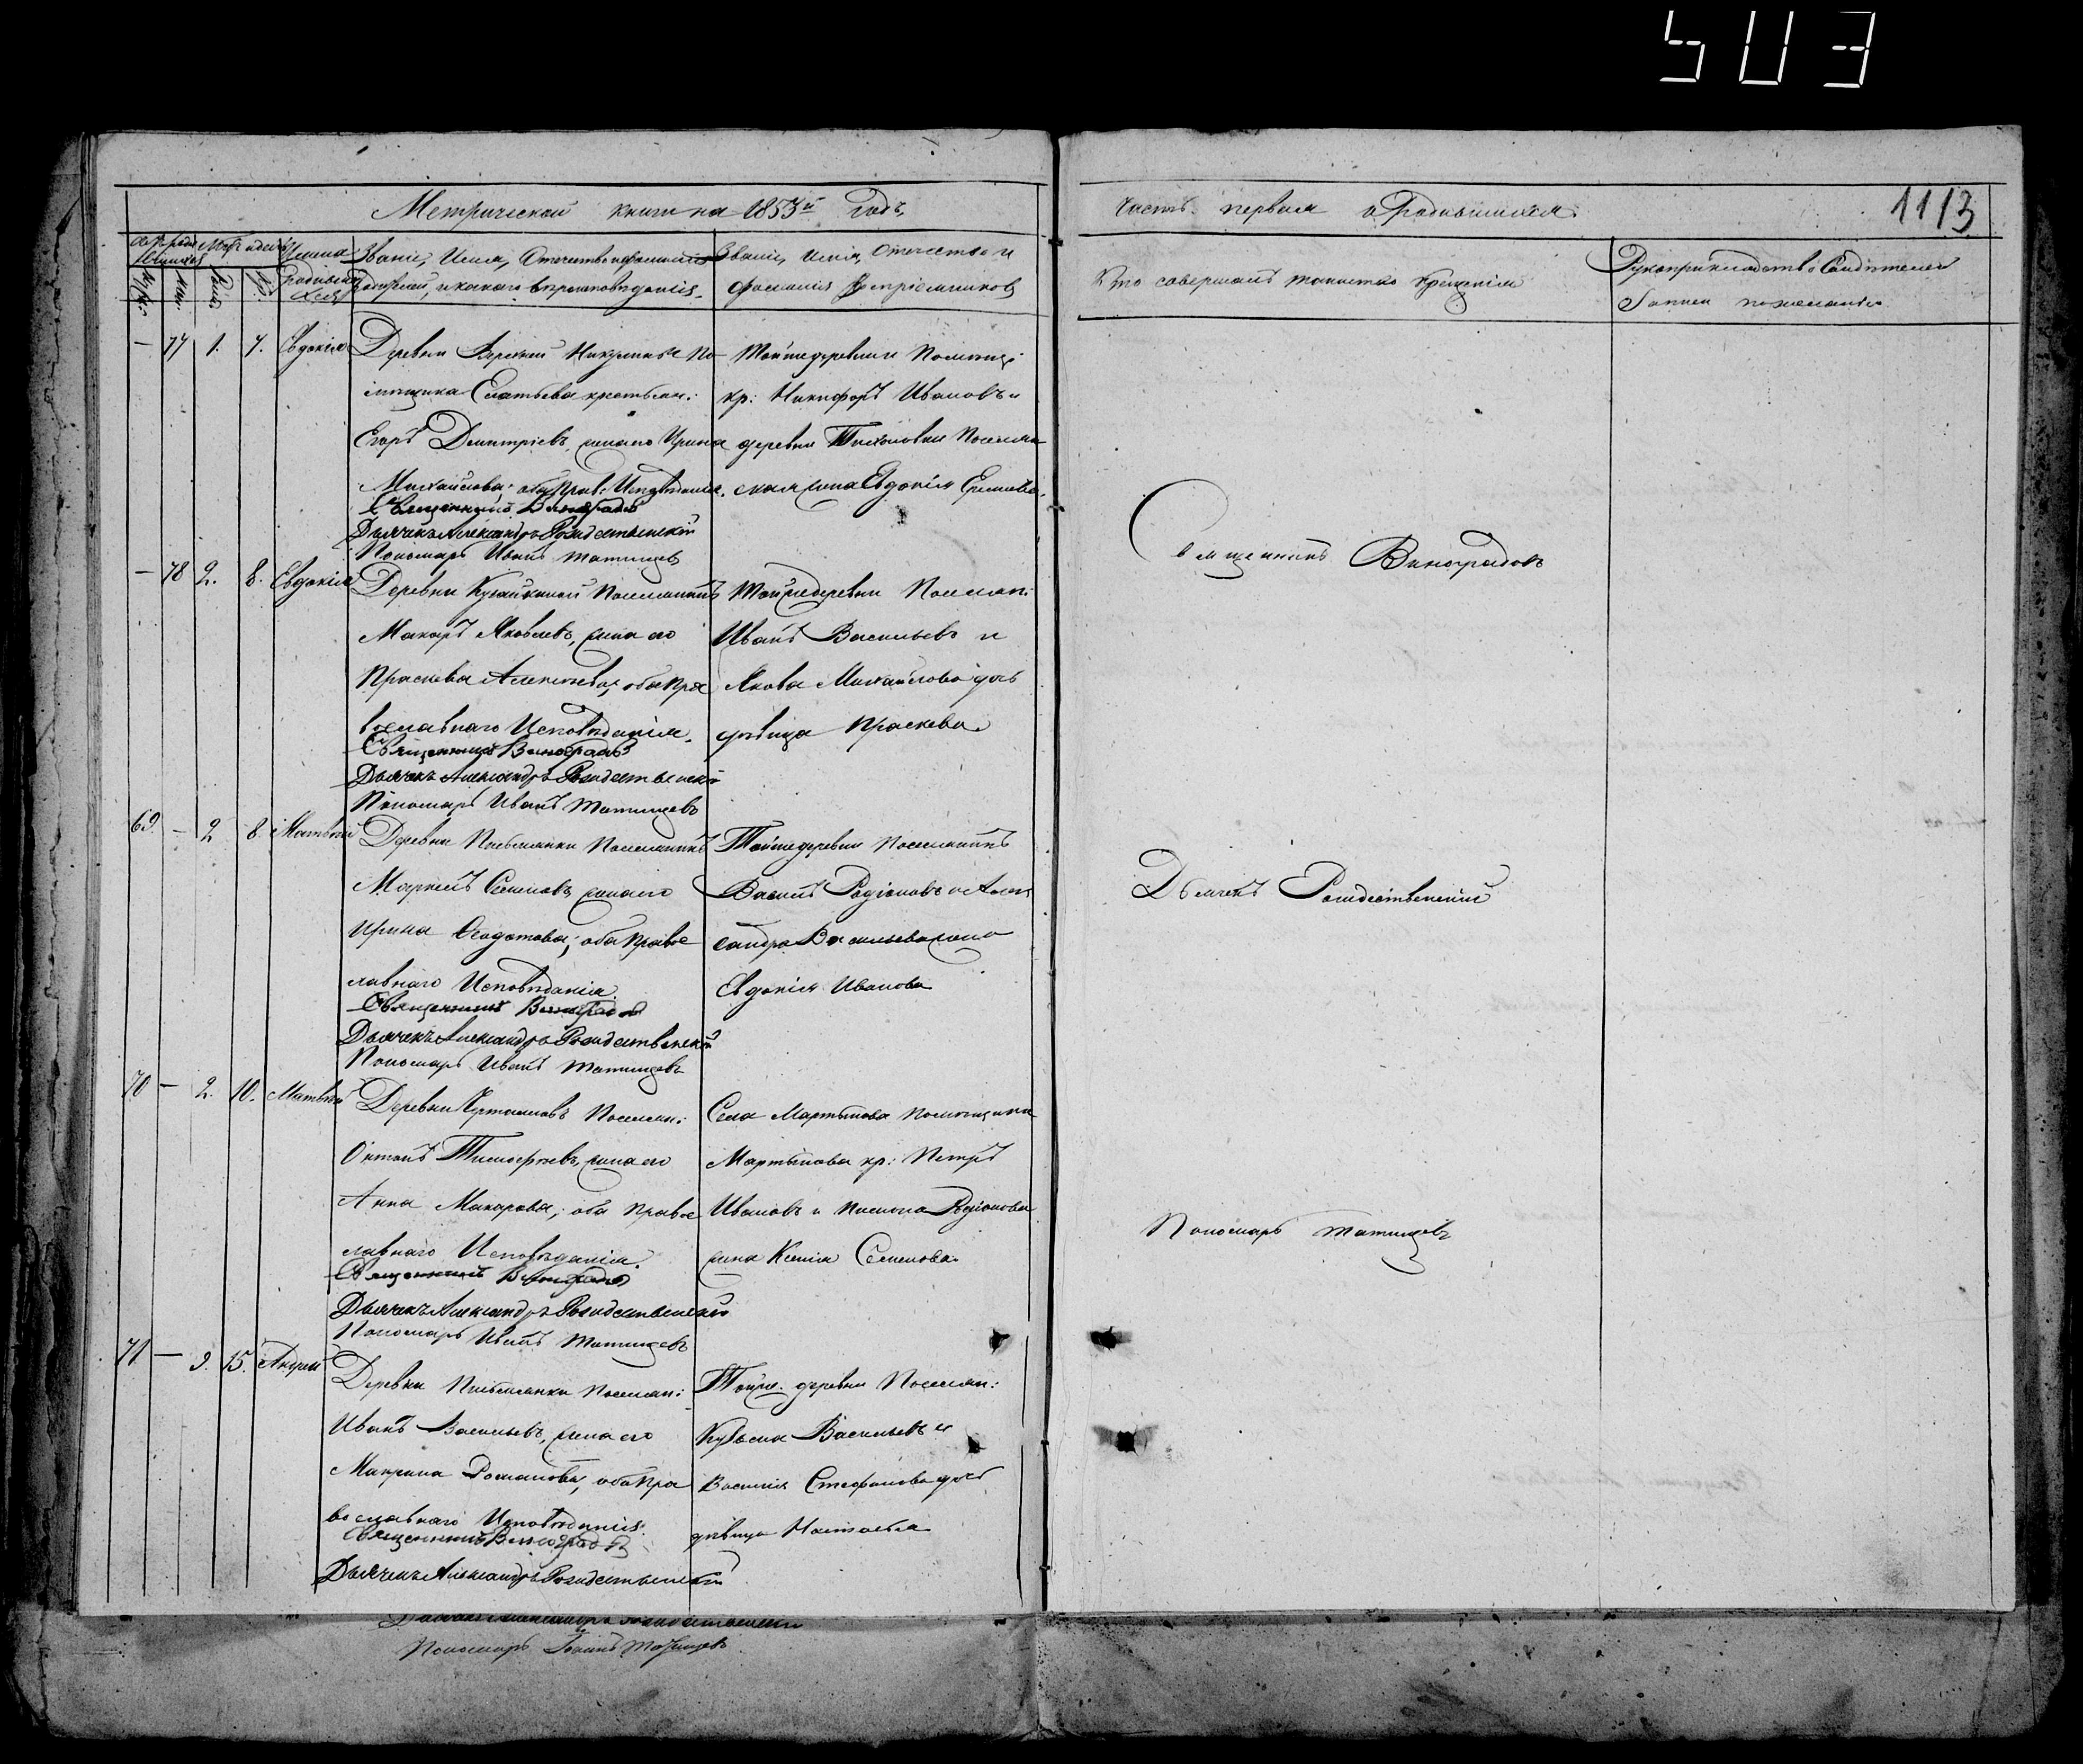 503
Метрической книги на 1853й годъ,
Часть первая о родившихся.
1113
Имена
родивших
ся
Званіе, Имя, Отчество и фамилія
родителей, и какого вѣроисповѣданія.
Званіе, Имя, Отчество и
фамилія Воспріемниковъ
Кто совершалъ таинство крещенія
Рукоприкладство Свидѣтелей
записи по желанію
— 77 1. 7. Евдокія
Деревни Никулиной По
мѣщика крестьян:
Егоръ Дмитріевъ, жена его Ирина
Михайлова; оба прав: Исповѣданія.
Священникъ Виноградовъ
Дьячекъ Александръ Рождественскій
Пономарь Иванъ Татищевъ
Тойже деревни Помѣщ:
кр: Никифоръ Ивановъ и
деревни Тихоновки Поселян
жена Евдокія
— 78 2. 8. Евдокія
Деревни Поселянинъ
Макаръ Яковлевъ, жена его
Праскева Алексѣева, оба пра
вославнаго Исповѣданія.
Священникъ Виноградовъ
Дьячекъ Александръ Рождественскій
Пономарь Иванъ Татищевъ
Тойже деревни Поселян:
Иванъ Васильевъ и
Якова Михайлова дочь
дѣвица Праскева.
69. — 2 8. Матвѣй
Деревни Письмянки Поселянинъ
Маркелъ Семеновъ, жена его
Ирина Ѳедотова; оба право
славнаго Исповѣданія.
Священникъ Виноградовъ
Дьячекъ Александръ Рождественскій
Пономарь Иванъ Татищевъ
Тойже деревни Поселянинъ
Василій Родіоновъ и Алек
сандра Васильева жена
Евдокія Иванова
70 — 2. 10. Матвѣй
Деревни Поселян:
Тимофѣевъ, жена его
Анна Макарова; оба право
славнаго Исповѣданія.
Священникъ Виноградовъ
Дьячекъ Александръ Рождественскій
Пономарь Иванъ Татищевъ
Села Мартынова Помѣщика
Мартынова кр: Петръ
Ивановъ и Родіонова
жена Ксенія Семенова.
71 — 9. 15. Андрей
Деревни Письмянки Поселян:
Иванъ Васильевъ, жена его
Макрина Романова, оба пра
вославнаго Исповѣданія.
Священникъ Виноградовъ
Дьячекъ Александръ Рождественскій
Тойже деревни Поселян:
Кузьма Васильевъ и
Василія Стефанова дочь
дѣвица Настасья
Священникъ Виноградовъ
Дьячекъ Рождественскій
Пономарь Татищевъ
Пономарь Іоаннъ Татищевъ